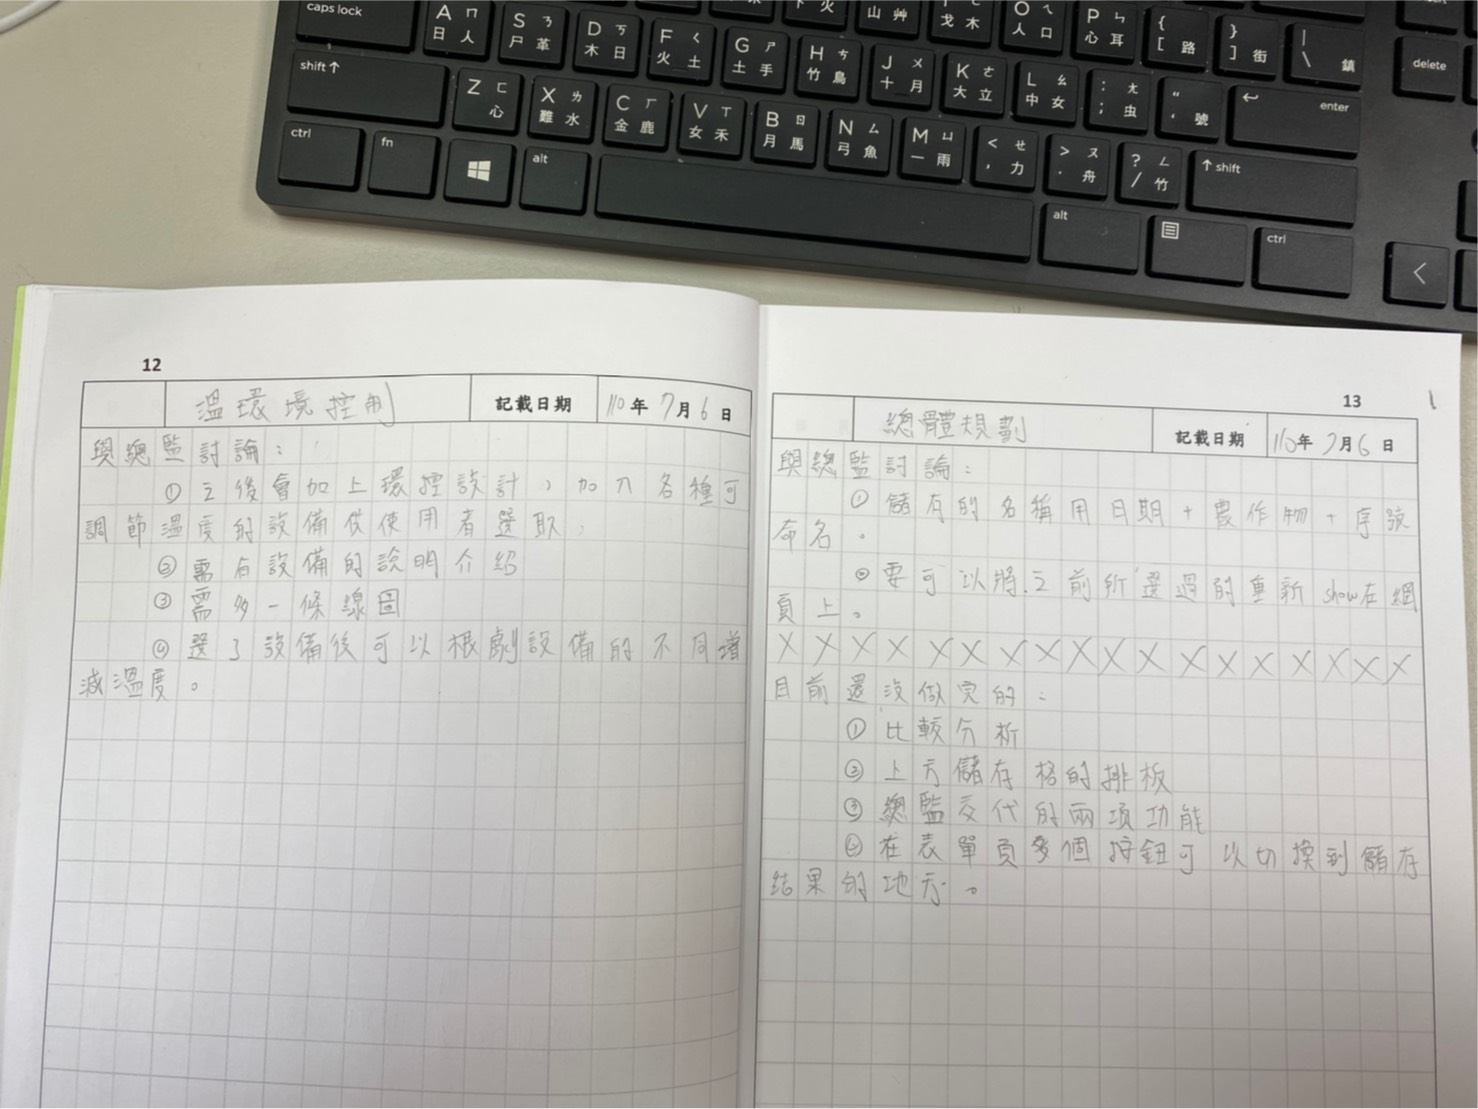 caps lock
A ㄇ 日 人
S ㄋ 尸 革
D ㄎ 木 日
F ㄑ 火 土
G ㄕ 土 手
H ㄘ 竹 鳥
J ㄨ 十 月
K ㄜ 大 立
L ㄠ 中 女
: ㄤ ; 虫
" ' 號
enter
山 艸
戈 木
O ㄟ 人 口
P ㄣ 心 耳
{ [ 路
} ] 街
| \ 鎮
delete
shift
Z ㄈ 心
X ㄌ 難 水
C ㄏ 金 鹿
V ㄒ 女 禾
B ㄖ 月 馬
N ㄙ 弓 魚
M ㄩ 一 雨
< ㄝ , 力
> ㄡ . 舟
? ㄥ / 竹
shift
ctrl
fn
alt
alt
ctrl
12
溫環境控制 記載日期 110年7月6日
與總監討論:
①之後會加上環控設計,加入各種可
調節溫度的設備供使用者選取,
②需有設備的說明介紹
③需多一條線圖
④選了設備後可以根劇設備的不同增
減溫度。
13
總體規劃 記載日期 110年7月6日
與總監討論:
①儲存的名稱用日期+農作物+序號
命名。
②要可以將之前所選過的重新show在網
頁上。
XXXXXXXXXXXXXXXXXX
目前還沒做完的:
①比較分析
②上方儲存格的排板
③總監交代的兩項功能
在表單頁多個按鈕可以切換到儲存
結果的地方。